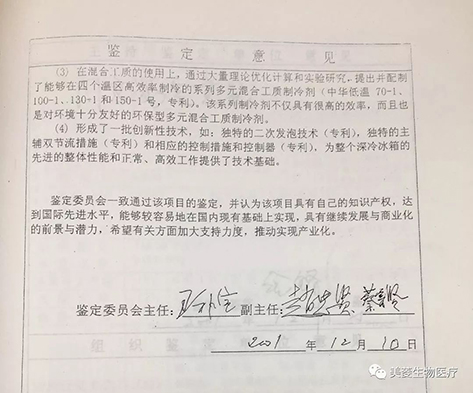 鉴 定 意 见
(3) 在混合工质的使用上，通过大量理论优化计算和实验研究，提出并配制
了能够在四个温区高效率制冷的系列多元混合工质制冷剂（中华低温 70-1、
100-1、130-1 和 150-1 号，专利）。该系列制冷剂不仅具有很高的效率，而且也
是对环境十分友好的环保型多元混合工质制冷剂。
(4) 形成了一批创新性技术，如：独特的二次发泡技术（专利），独特的主
辅双节流措施（专利）和相应的控制措施和控制器（专利），为整个深冷冰箱的
先进的整体性能和正常、高效工作提供了技术基础。
鉴定委员会一致通过该项目的鉴定，并认为该项目具有自己的知识产权，达
到国际先进水平，能够较容易地在国内现有基础上实现，具有继续发展与商业化
的前景与潜力，希望有关方面加大支持力度，推动实现产业化。
鉴定委员会主任： 副主任：
2001 年 12 月 10 日
美菱生物医疗